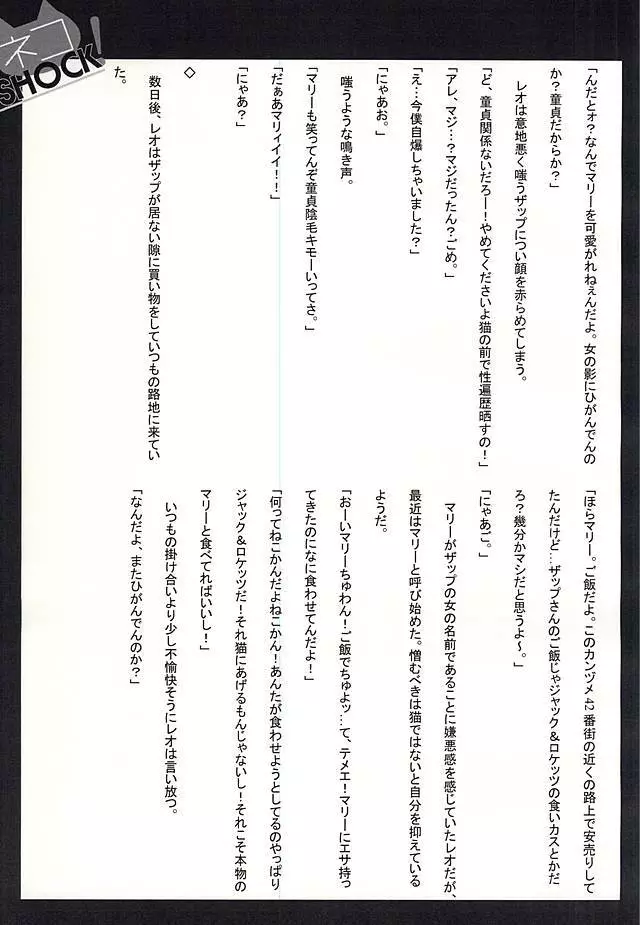 ネコ
SHOCK!
「んだとォ?なんでマリーを可愛がれねぇんだよ。女の影にひがんでんの
か?童貞だからか?」
レオは意地悪く嗤うザップについ顔を赤らめてしまう。
「ど、童貞関係ないだろー!やめてくださいよ猫の前で性遍歴晒すの!」
「アレ、マジ…?マジだったん?ごめ。」
「え…今僕自爆しちゃいました?」
「にゃあお。」
嗤うような鳴き声。
「マリーも笑ってんぞ童貞陰毛キモーいってさ。」
「だぁあマリィイイ!!」
「にゃあ?」
◇
数日後、レオはザップが居ない隙に買い物をしていつもの路地に来てい
た。
「ほらマリー。ご飯だよ。このカンヅメ42番街の近くの路上で安売りして
たんだけど…ザップさんのご飯じゃジャック&ロケッツの食いカスとかだ
ろ?幾分かマシだと思うよ~。」
「にゃあご。」
マリーがザップの女の名前であることに嫌悪感を感じていたレオだが、
最近はマリーと呼び始めた。憎むべきは猫ではないと自分を抑えている
ようだ。
「おーいマリーちゅわん!ご飯でちゅよッ…て、テメエ!マリーにエサ持っ
てきたのになに食わせてんだよ!」
「何ってねこかんだよねこかん!あんたが食わせようとしてるのやっぱり
ジャック&ロケッツだ!それ猫にあげるもんじゃないし!それこそ本物の
マリーと食べてればいいし!」
いつもの掛け合いより少し不愉快そうにレオは言い放つ。
「なんだよ、またひがんでんのか?」